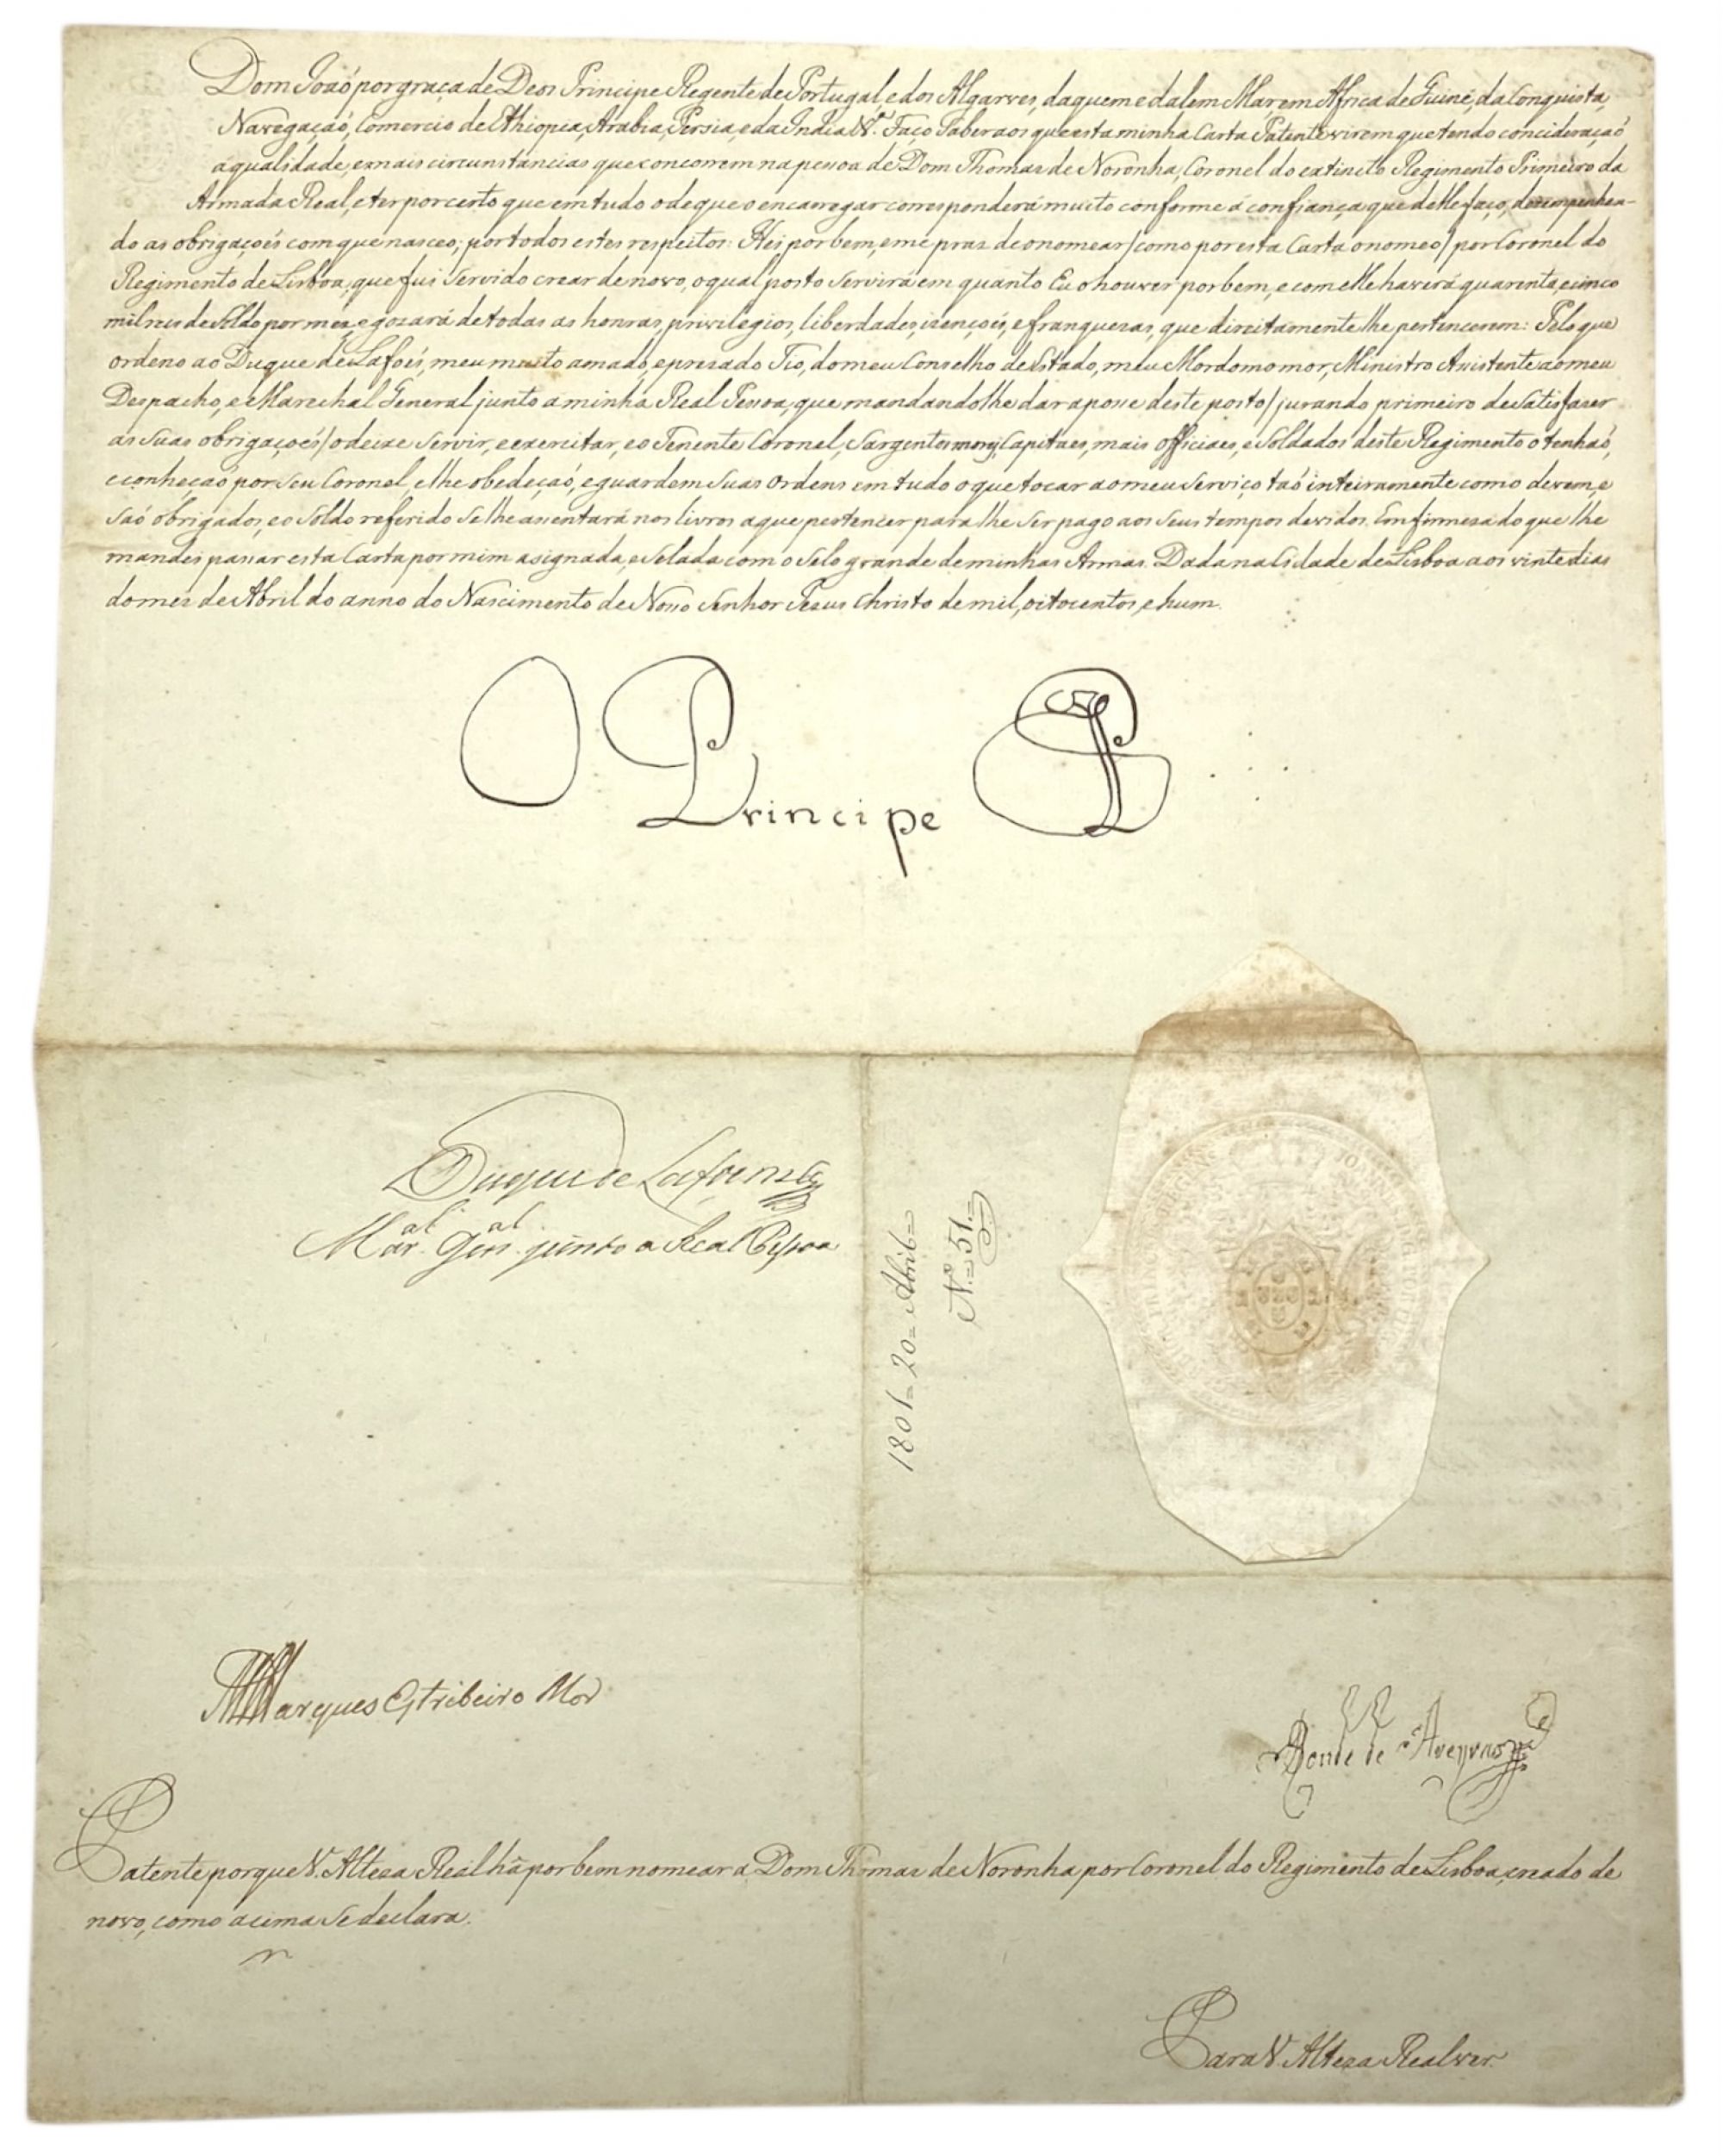 Dom Joaó por graça de Deos Principe Regente de Portugal, e dos Algarves, daquem e dalem Mar, em Africa de Guiné, da Conquista,
Navegaçaó, Comercio de Ethiopia, Arabia, Persia, e da India &.ª Faço Saber aos que esta minha Carta Patente virem que tendo concideraçaó
á qualidade, e mais circunstancias que concorrem na pessoa de Dom Thomas de Noronha, Coronel do extincto Regimento Primeiro da
Armada Real, e ter por certo que em tudo o de que o encarregar corresponderá muito conforme á confiança que delle faço, desempenhan-
do as obrigaçoés com que nasceo; por todos estes respeitos: Hei por bem, e me praz de o nomear / como por esta Carta o nomeo / por Coronel do
Regimento de Lisboa, que fui Servido crear de novo, o qual posto Servirá em quanto Eu o houver por bem, e com elle haverá quarenta, e cinco
mil reis de Soldo por mez, e gozará de todas as honras, privilegios, liberdades, izençoés, e franquezas, que direitamente lhe pertencerem: Pelo que
ordeno ao Duque de Lafoés, meu muito amado, e prezado Tio, do meu Conselho de Estado, meu Mordomo mor, Ministro Assistente ao meu
Despacho, e Marechal General junto a minha Real Pessoa, que mandandolhe dar a posse deste posto / jurando primeiro de Satisfazer
as Suas obrigaçoés / o deixe Servir, e exercitar, e o Tenente Coronel, Sargentos mores, Capitaes, mais Officiaes, e Soldados deste Regimento o tenhaó,
e conheçaó por Seu Coronel, e lhe obedeçaó, e guardem Suas Ordens em tudo o que tocar ao meu Serviço taó inteiramente como devem, e
Saó obrigados, e o Soldo referido Se lhe assentará nos livros a que pertencer para lhe Ser pago aos Seus tempos devidos. Em firmeza do que lhe
mandei passar esta Carta por mim asignada, e Selada com o Selo grande de minhas Armas. Dada na Cidade de Lisboa aos vinte dias
do mez de Abril do anno do Nascimento de Nosso Senhor Jezus Christo de mil, oitocentos, e hum.
O Principe
Duque de Lafoens
M.al Gen.al junto a Real Pessoa
1801= 20= Abril=
N.º= 51.=
Marques Estribeiro Mor
Conde de Aveyras
Patente porque V. Alteza Real há por bem nomear a Dom Thomas de Noronha por Coronel do Regimento de Lisboa, creado de
novo, como acima Se declara.
Para V. Alteza Real ver.